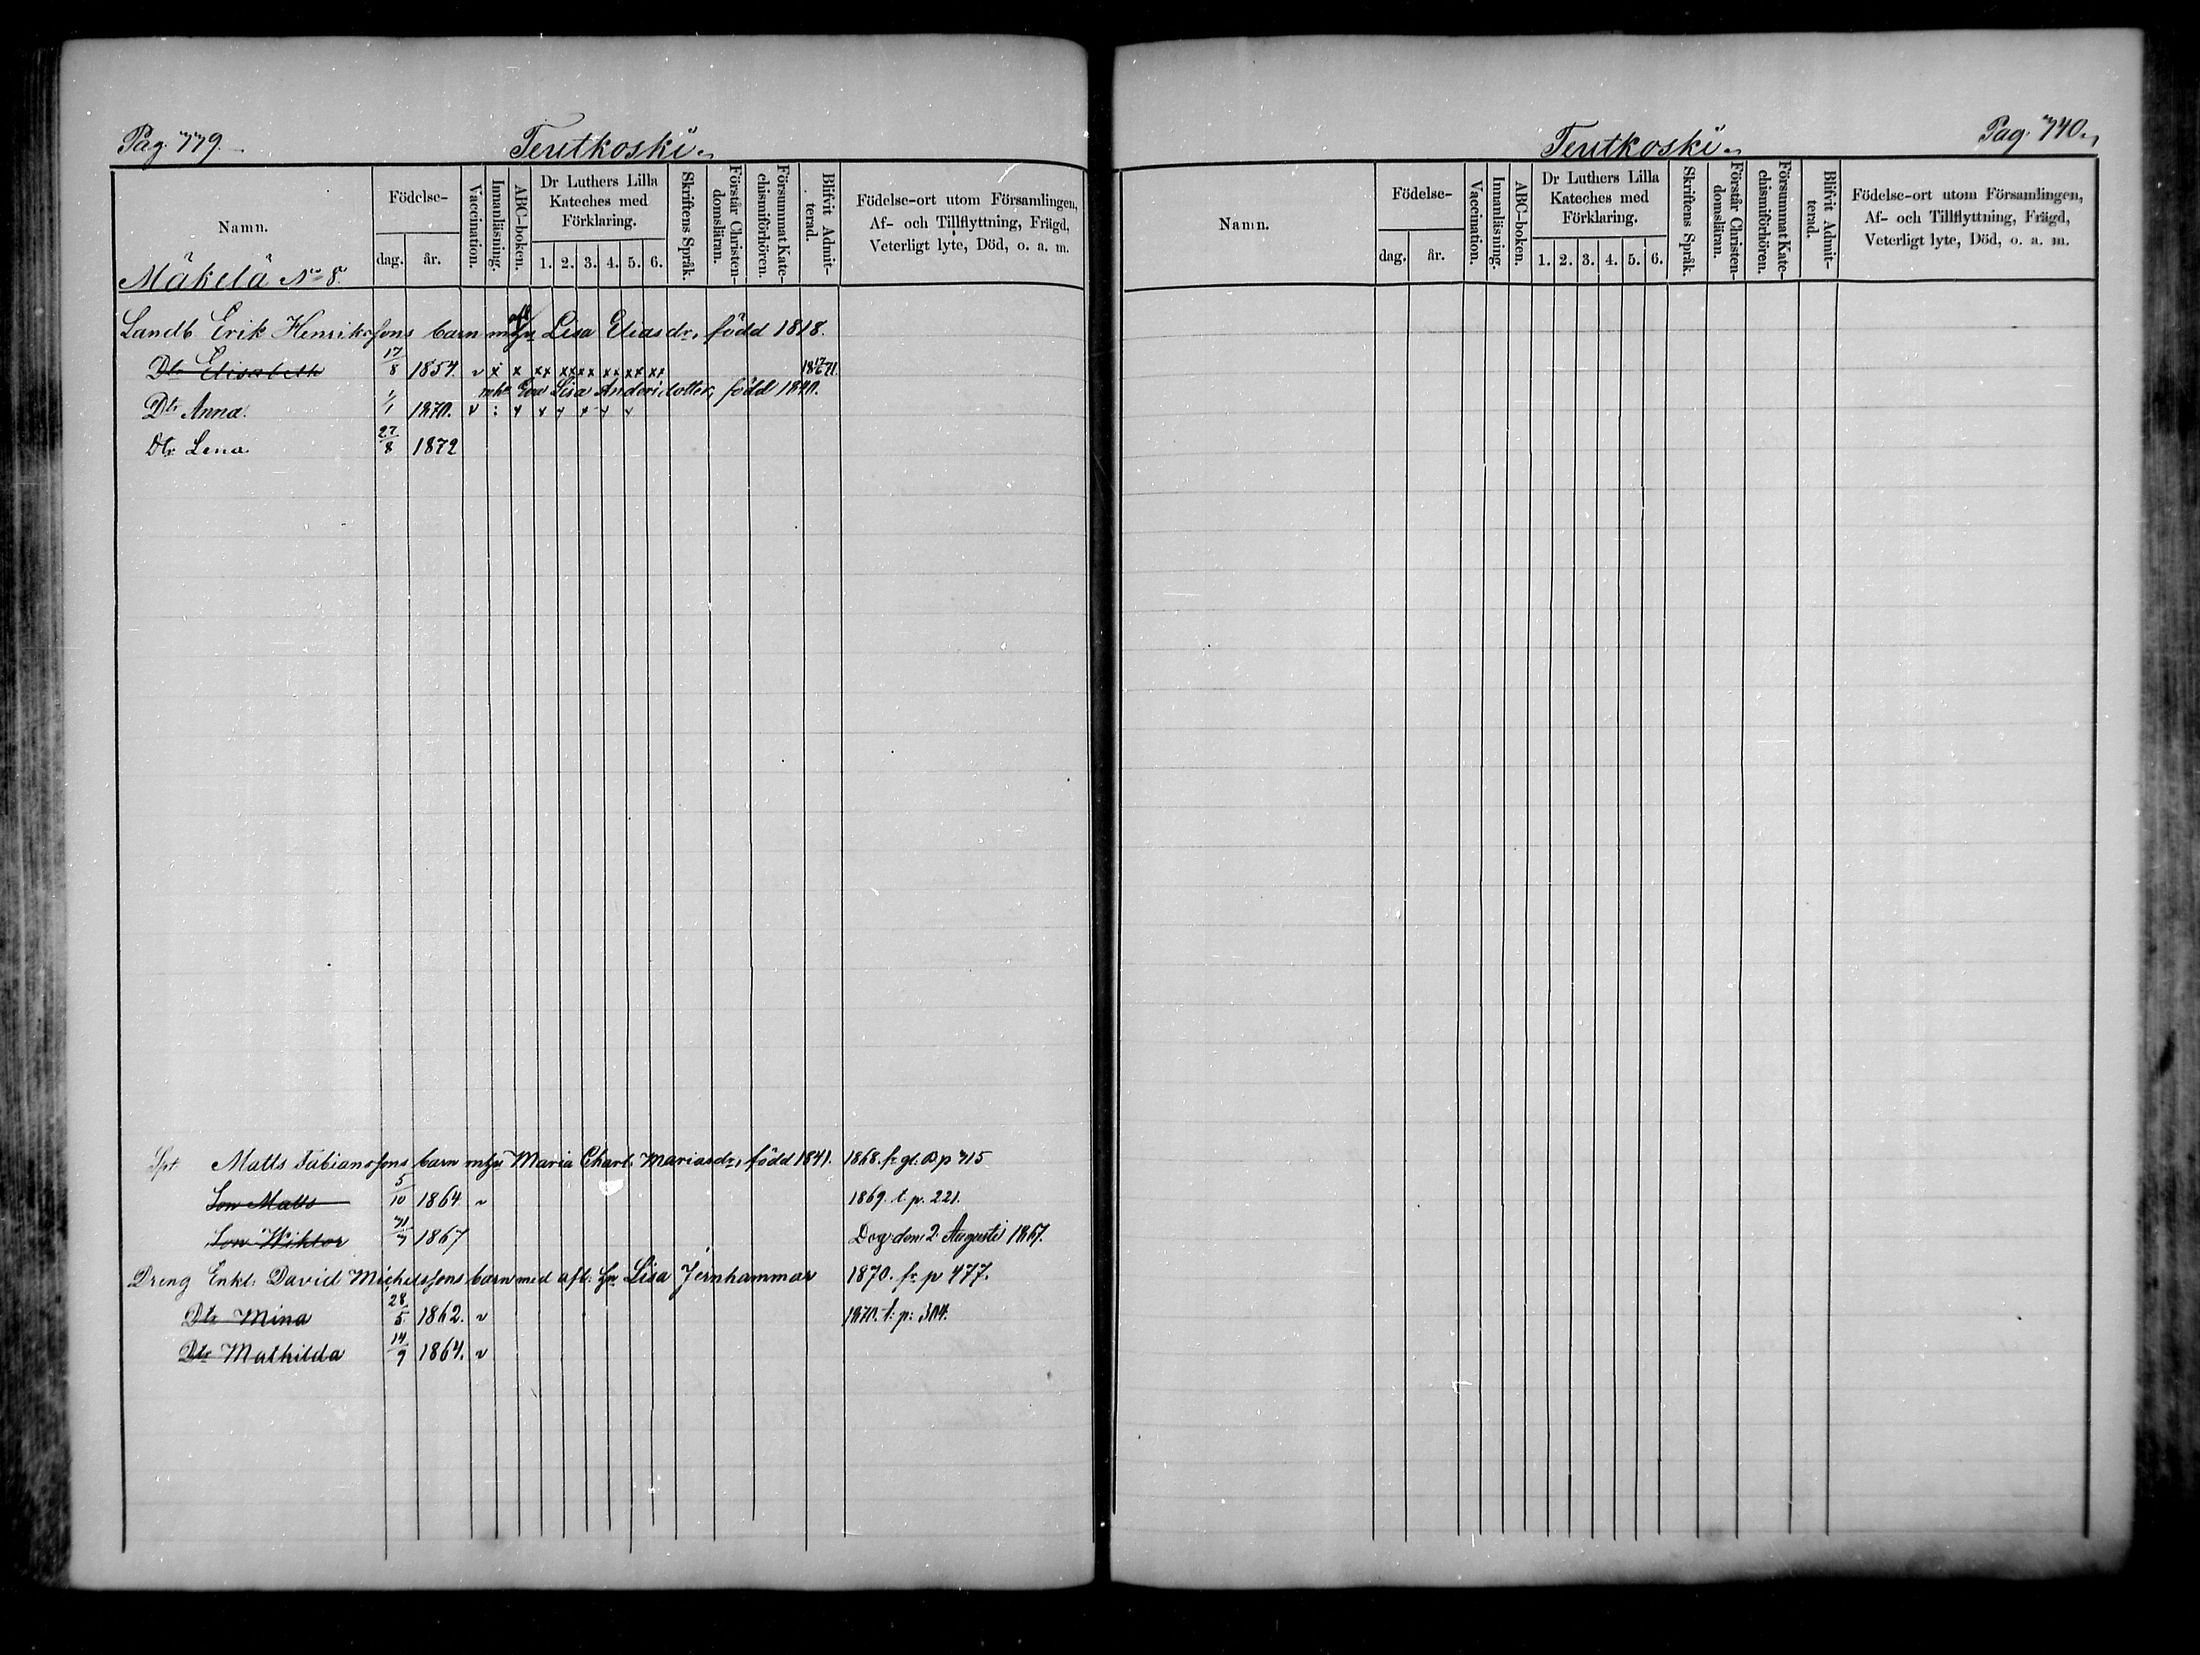 Pag. 779.
Teutkoski.
Namn.
Födelse-
dag.
år.
Vaccination.
Innanläsning.
ABC-boken.
Dr Luthers Lilla
Kateches med
Förklaring.
1. 2. 3. 4. 5. 6.
Skriftens Språk.
Förstår Christen-
domsläran.
Försummat Kate-
chismiförhören.
Blifvit Admit-
terad.
Födelse-ort utom Församlingen,
Af- och Tillflyttning, Frägd,
Veterligt lyte, Död, o. a. m.
Mäkelä No 8.
Landb. Erik Henrikssons barn m afl. Hu Lisa Eliasdr, född 1818.
Dtr Elisabeth 17/8 1854. v x x xx xx xx xx xx xx 18 17/6 71.
mha Eva Lisa Andersdotter, född 1840.
Dtr Anna. 1/1 1870. v : x x x x x x
Dtr Lena 27/8 1872
Spt Matts Fabianssons barn m hu Maria Charl. Mariasdr, född 1841. 1868. fr gl. B p 715
Son Matts 5/10 1864 v 1869. t. p. 221.
Son Wiktor 31/7 1867 Dog den 2 Augusti 1867.
Dreng Enkl. David Michelssons barn med afl. Hu Lisa Jernhammar 1870. fr p 477.
Dtr Mina 28/5 1862. v 1870. t. p. 304.
Dtr Mathilda 14/9 1864. v
Teutkoski.
Pag. 740.
Namn.
Födelse-
dag.
år.
Vaccination.
Innanläsning.
ABC-boken.
Dr Luthers Lilla
Kateches med
Förklaring.
1. 2. 3. 4. 5. 6.
Skriftens Språk.
Förstår Christen-
domsläran.
Försummat Kate-
chismiförhören.
Blifvit Admit-
terad.
Födelse-ort utom Församlingen,
Af- och Tillflyttning, Frägd,
Veterligt lyte, Död, o. a. m.